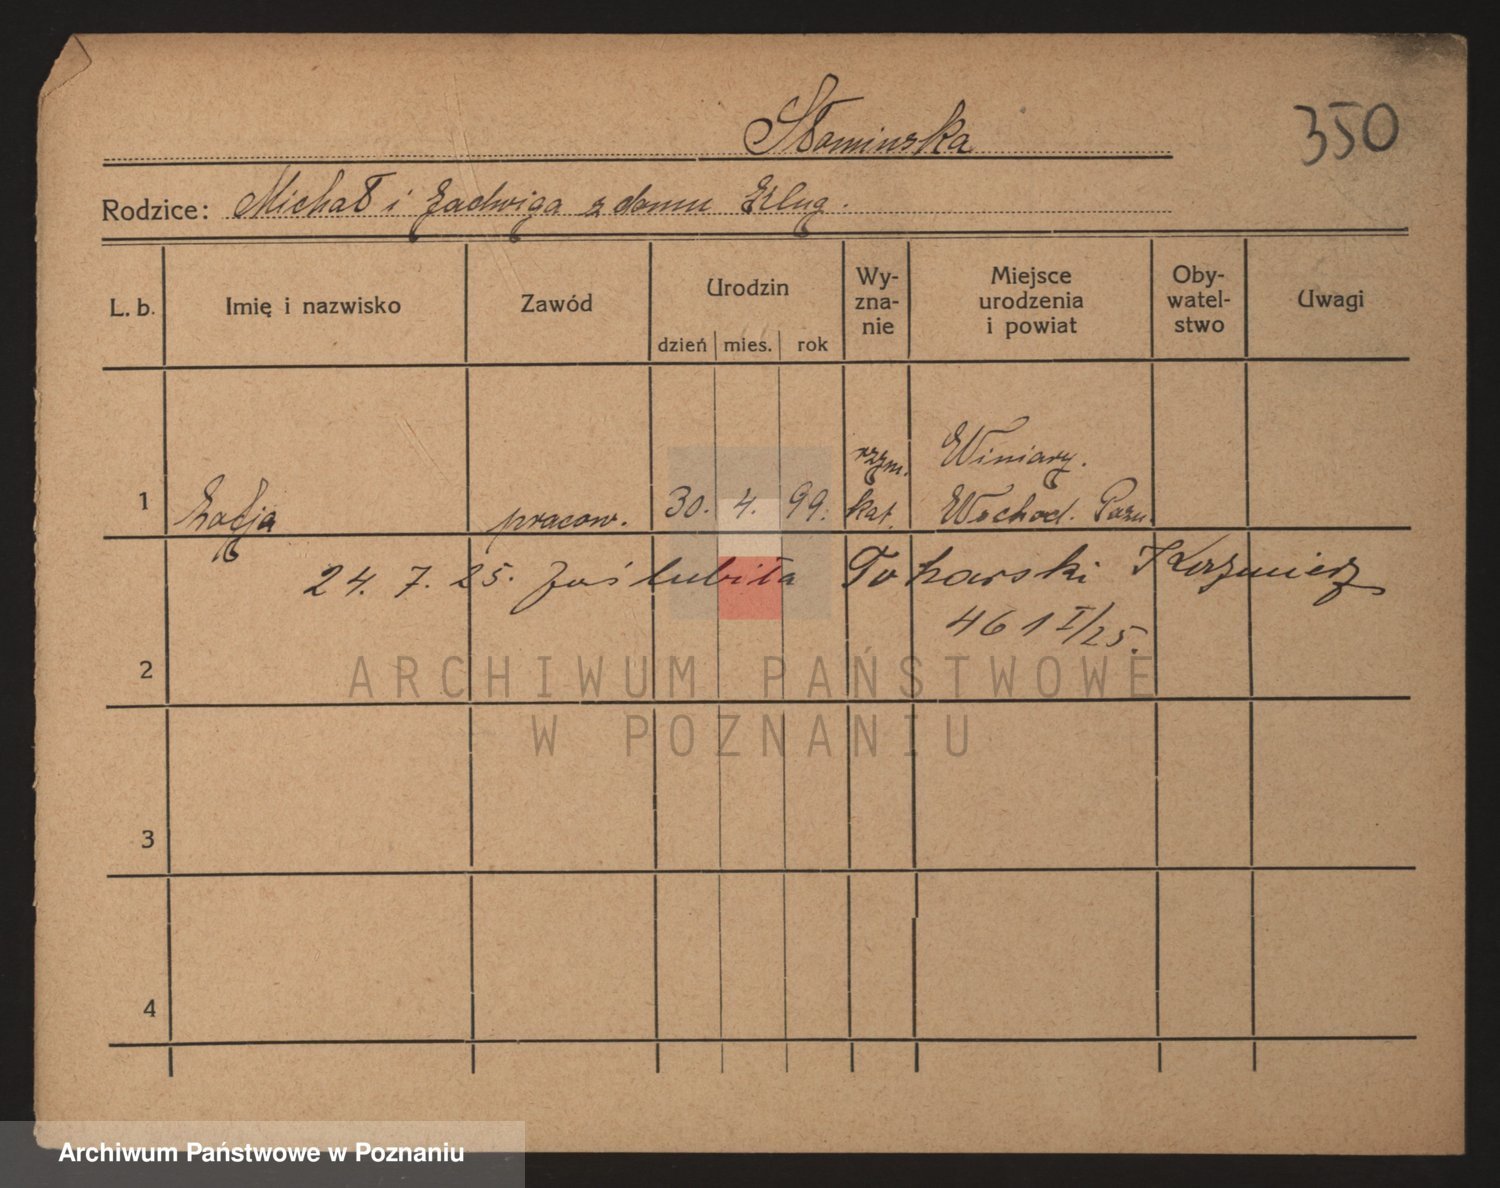 Słominska
350
Rodzice: Michał i Jadwiga z domu Klug.
L. b. Imię i nazwisko Zawód Urodzin Wy-zna-nie Miejsce urodzenia i powiat Oby-watel-stwo Uwagi
dzień mies. rok
rzym. Winiary.
1 Zofja pracow. 30. 4. 99. kat. Wschod. Pozn.
24. 7. 25. zaślubiła Tokarski Kazmierz
461 I/25.
2
ARCHIWUM PAŃSTWOWE
W POZNANIU
3
4
Archiwum Państwowe w Poznaniu